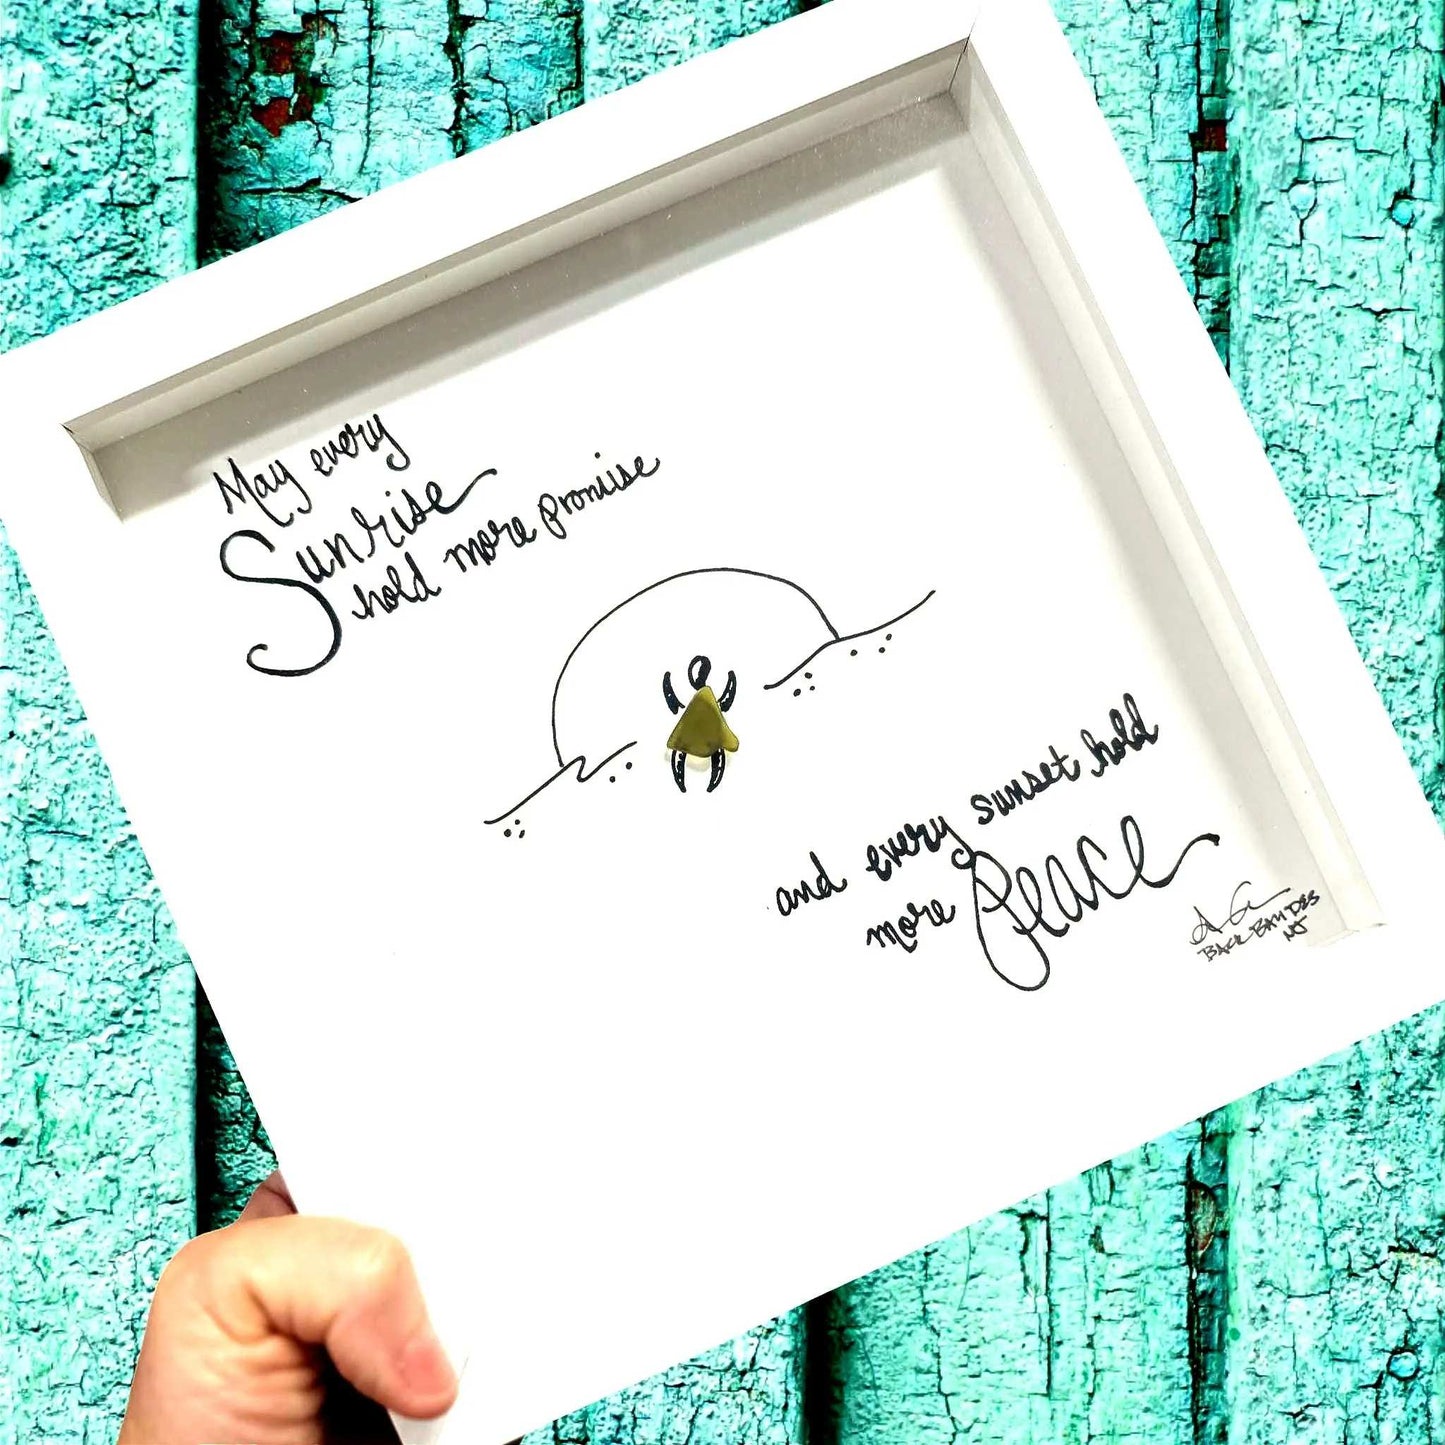 May every
Sunrise
hold more promise
and every sunset hold
more Peace
BACK BAY DES
NJ